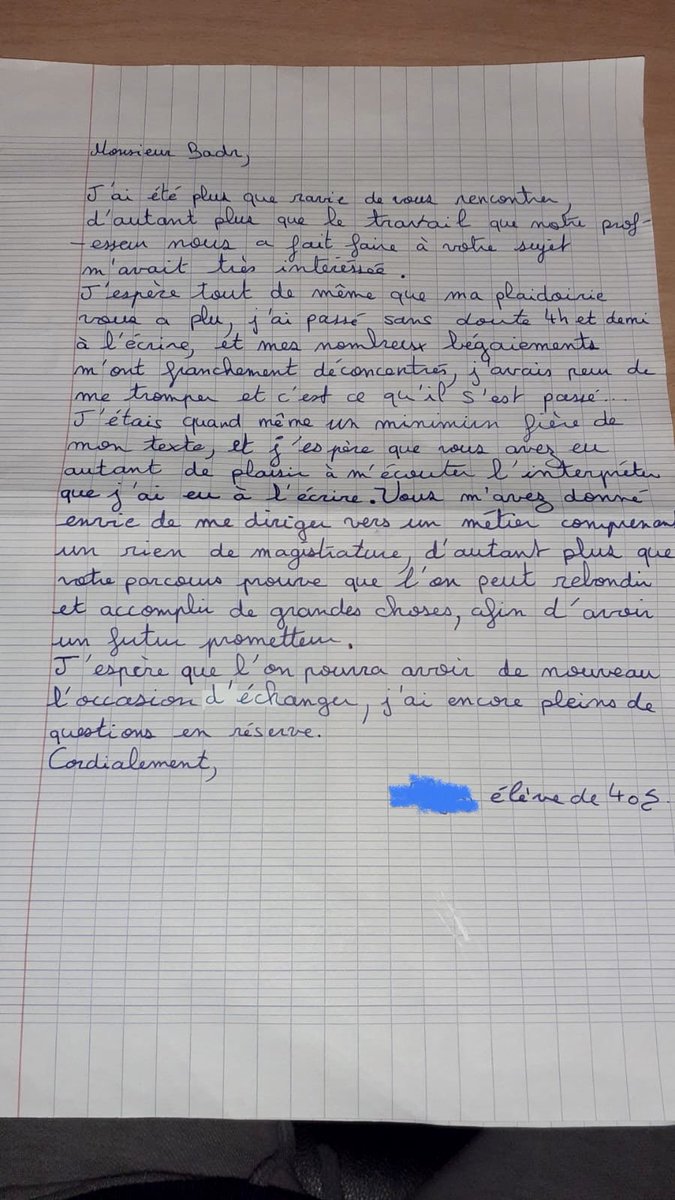 Monsieur Badr,
J'ai été plus que ravie de vous rencontrer,
d'autant plus que le travail que notre prof-
-esseur nous a fait faire à votre sujet
m'avait très intéressée.
J'espère tout de même que ma plaidoirie
vous a plu, j'ai passé sans doute 4h et demi
à l'écrire, et mes nombreux bégaiements
m'ont franchement déconcentrés, j'avais peur de
me tromper et c'est ce qu'il s'est passé...
J'étais quand même un minimum fière de
mon texte, et j'espère que vous avez eu
autant de plaisir à m'écouter l'interpréter
que j'ai eu à l'écrire. Vous m'avez donné
envie de me diriger vers un métier comprenant
un rien de magistrature, d'autant plus que
votre parcours prouve que l'on peut rebondir
et accomplir de grandes choses, afin d'avoir
un futur prometteur.
J'espère que l'on pourra avoir de nouveau
l'occasion d'échanger, j'ai encore pleins de
questions en réserve.
Cordialement,
élève de 405.